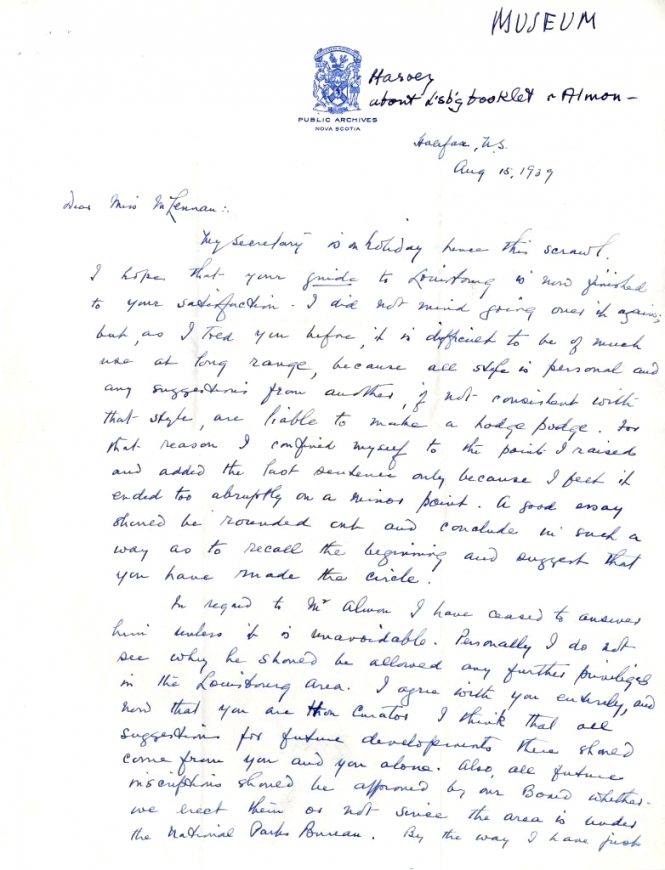 MUSEUM
Harvey
about L'sb'g booklet & Almon -
PUBLIC ARCHIVES
NOVA SCOTIA
Halifax, N.S.
Aug 15, 1939
Dear Miss McLennan:.
My secretary is on holiday hence this scrawl.
I hope that your guide to Louisbourg is now finished
to your satisfaction. I did not mind going over it again;
but, as I told you before, it is difficult to be of much
use at long range, because all style is personal and
any suggestions from another, if not consistent with
that style, are liable to make a hodge podge. For
that reason I confined myself to the point I raised
and added the last sentence only because I felt it
ended too abruptly on a minor point. A good essay
should be rounded out and conclude in such a
way as to recall the beginning and suggest that
you have made the circle.
In regard to Mr Almon I have ceased to answer
him unless it is unavoidable. Personally I do not
see why he should be allowed any further privileges
in the Louisbourg area. I agree with you entirely, and
now that you are Hon Curator I think that all
suggestions for future developments there should
come from you and you alone. Also, all future
inscriptions should be approved by our Board whether
we erect them or not since the area is under
the National Parks Bureau. By the way I have just